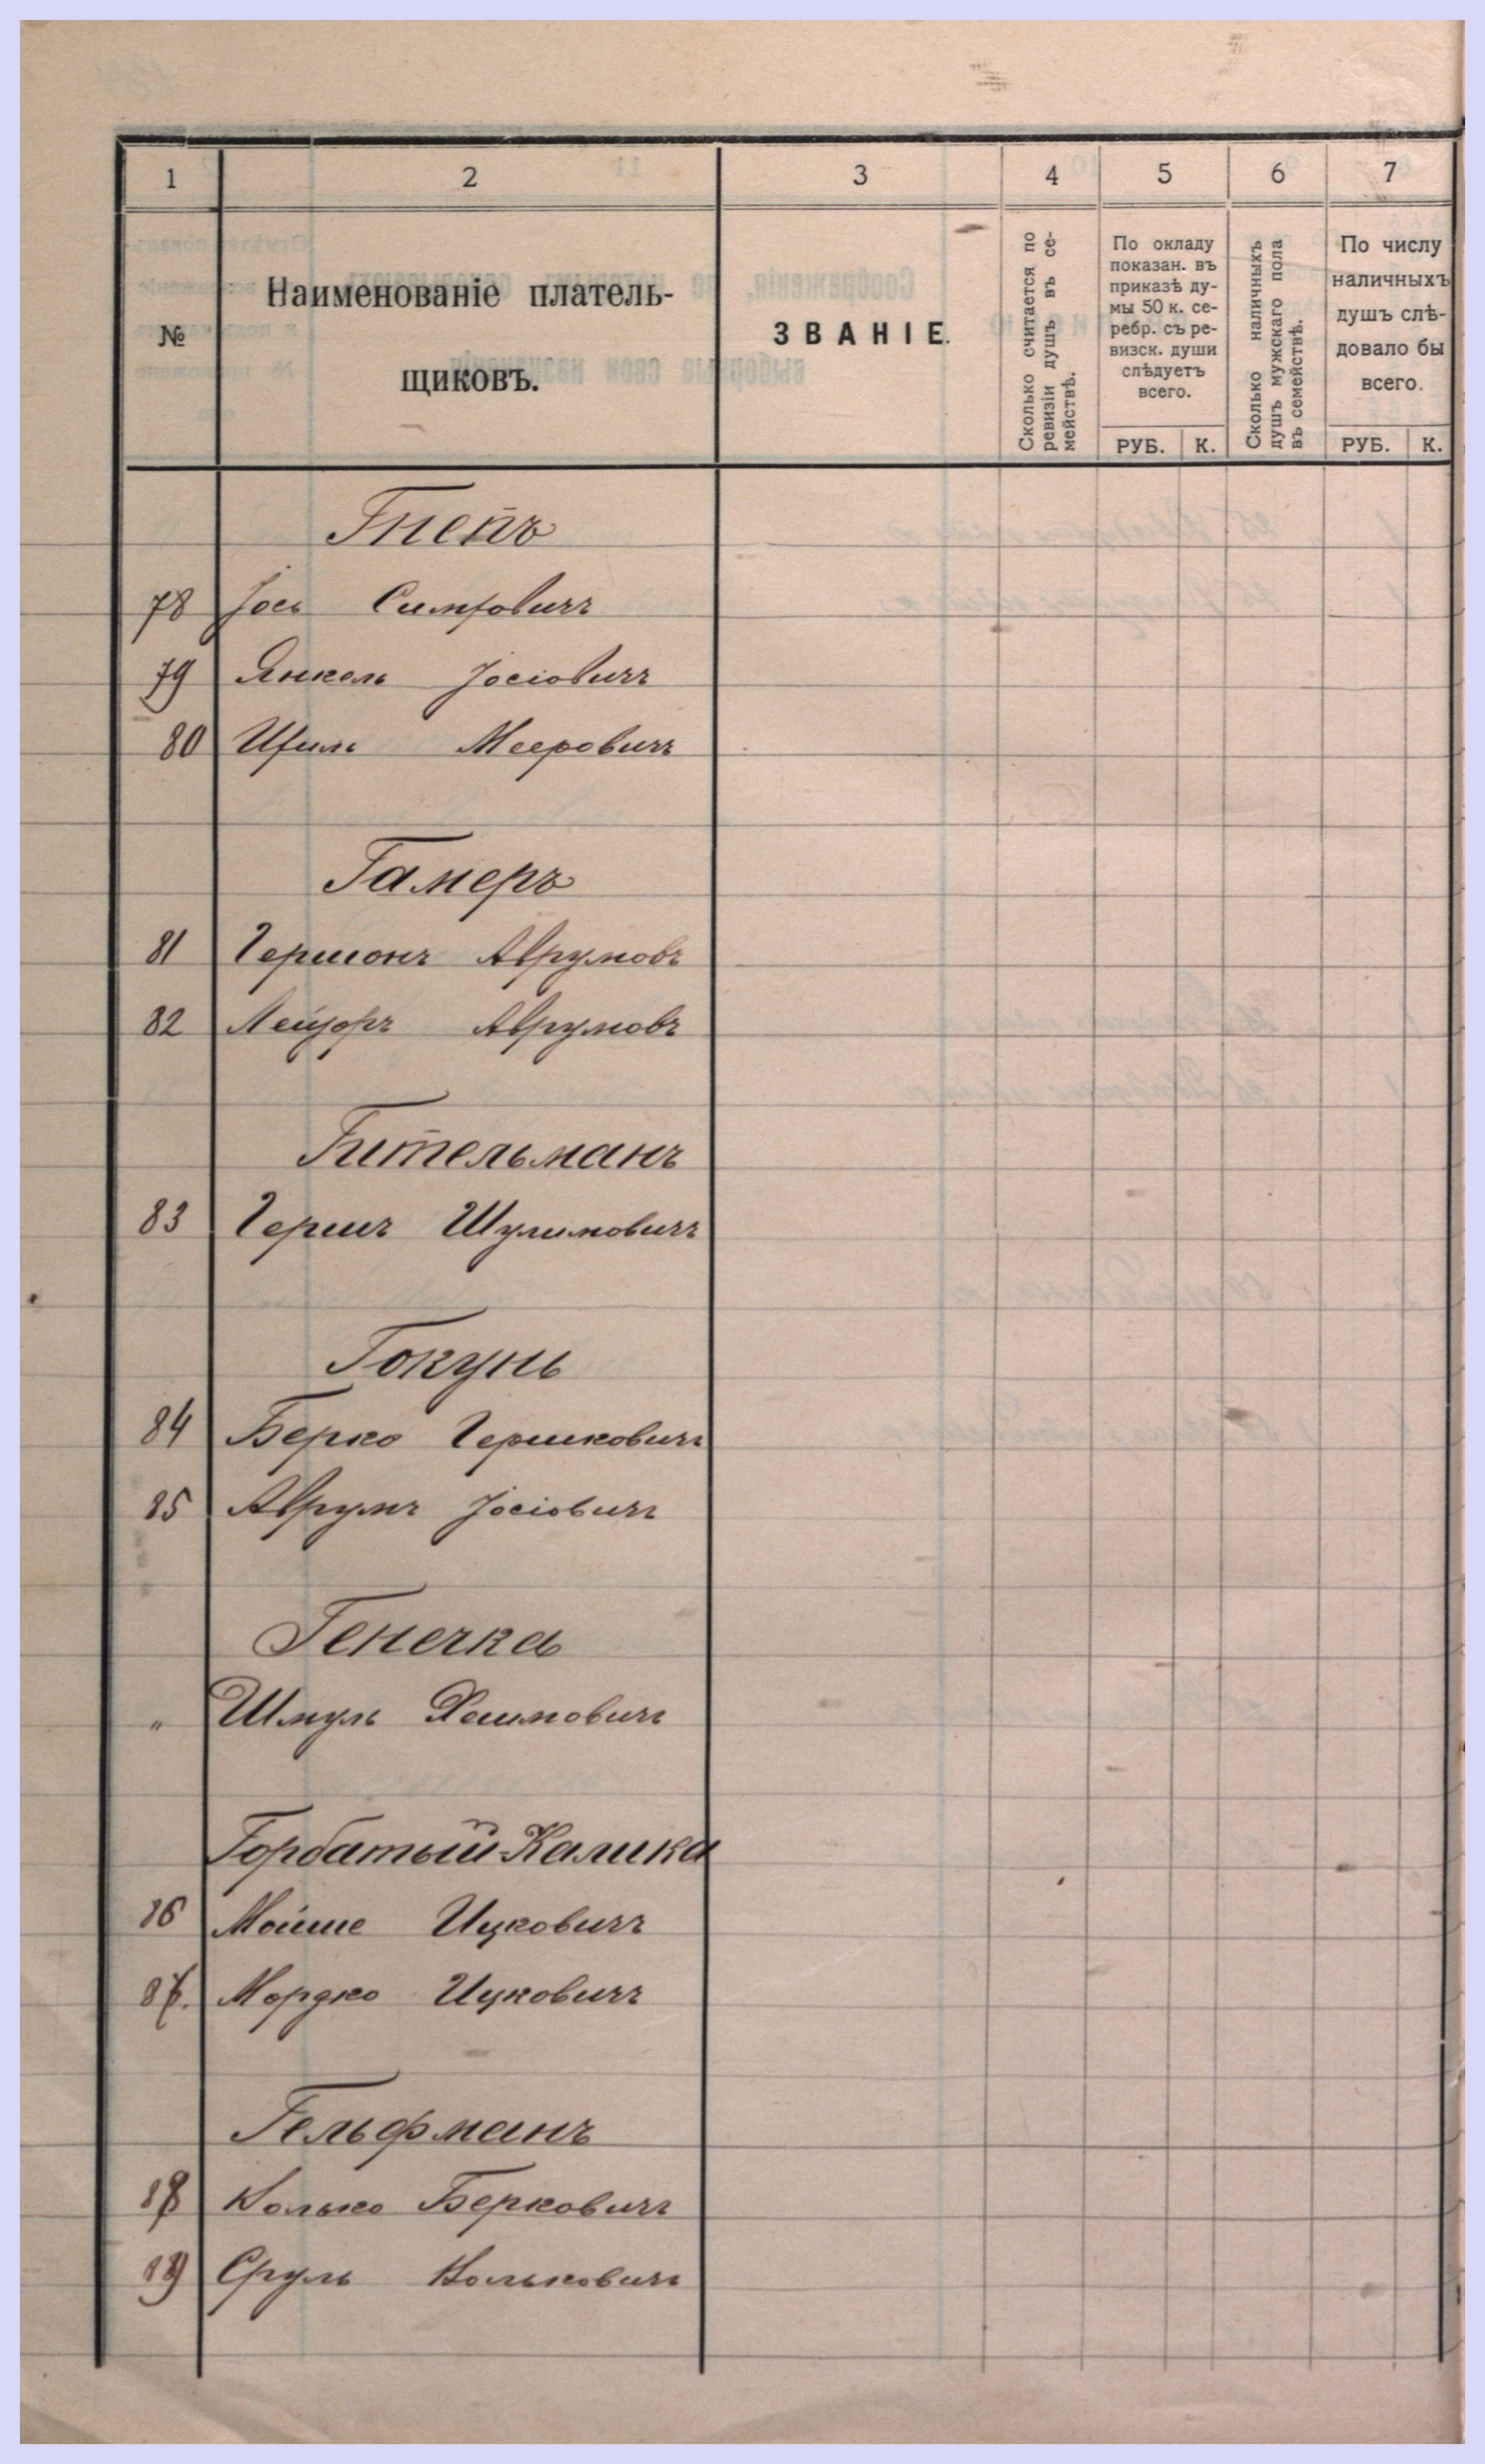 1 2 3 4 5 6 7
№
Наименованіе плательщиковъ.
ЗВАНІЕ.
Сколько считается по ревизіи душъ въ семействѣ.
По окладу
показан. въ
приказѣ ду-
мы 50 к. се-
ребр. съ ре-
визск. души
слѣдуетъ
всего.
РУБ. К.
Сколько наличныхъ душъ мужскаго пола въ семействѣ.
По числу
наличныхъ
душъ слѣ-
довало бы
всего.
РУБ. К.
78 Іось
79 Янкель Іосіовичъ
80 Мееровичъ
Гамеръ
81 Гершонъ Аврумовъ
82 Лейзоръ Аврумовъ
Гительманъ
83 Гершъ Шулимовичъ
Гокунь
84 Берко Гершковичъ
85 Аврумъ Іосіовичъ
Генечка
" Шмуль Хаимовичъ
Горбатый-Калика
86 Мойше Ицковичъ
87. Мордко Ицковичъ
Гельфманъ
88 Колько Берковичъ
89 Сруль Кольковичъ